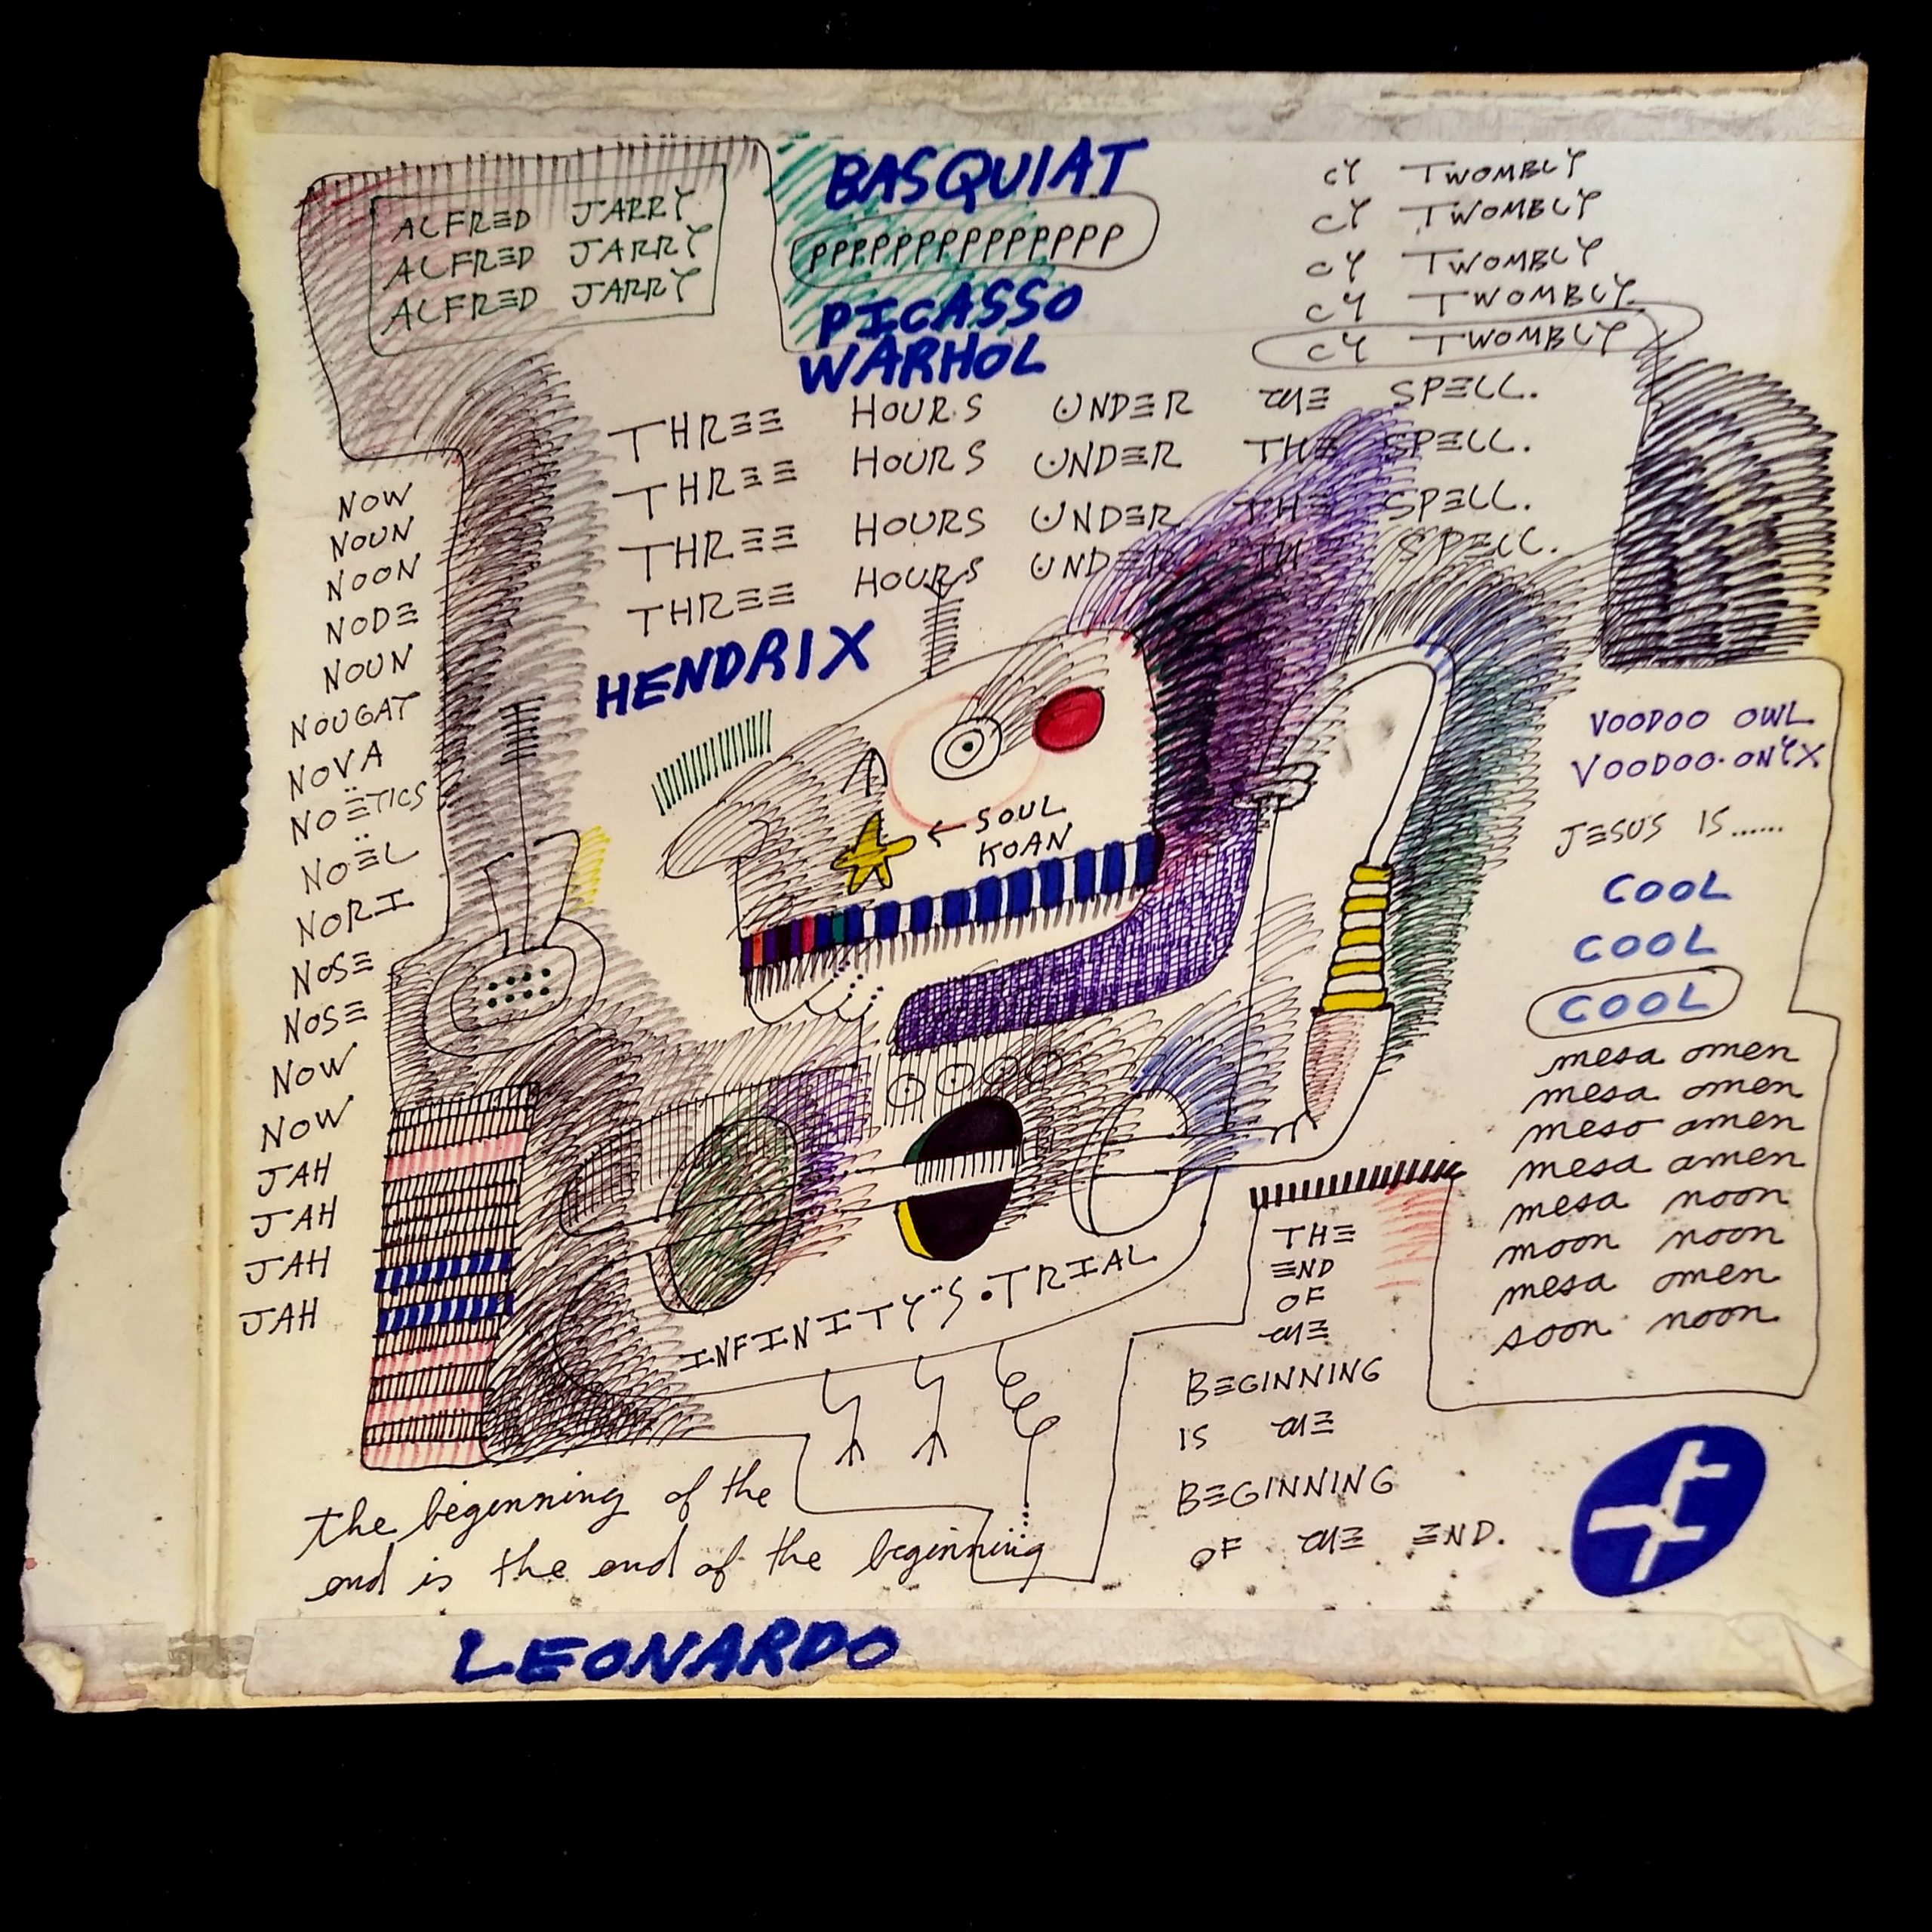 BASQUIAT
PPPPPPPPPPPPPP
PICASSO
WARHOL
ALFRED JARRY
ALFRED JARRY
ALFRED JARRY
CY TWOMBLY
CY TWOMBLY
CY TWOMBLY
CY TWOMBLY
CY TWOMBLY
THREE HOURS UNDER THE SPELL.
THREE HOURS UNDER THE SPELL.
THREE HOURS UNDER THE SPELL.
THREE HOURS UNDER TH SPELL.
HENDRIX
NOW
NOUN
NOON
NODE
NOUN
NOUGAT
NOVA
NOËTICS
NOËL
NORI
NOSE
NOSE
NOW
NOW
JAH
JAH
JAH
JAH
←SOUL
KOAN
VOODOO OWL
VOODOO·ONYX
JESUS IS......
COOL
COOL
COOL
mesa omen
mesa omen
meso amen
mesa amen
mesa noon
moon noon
mesa omen
soon noon
INFINITY¨S·TRIAL
THE
END
OF
THE
BEGINNING
IS THE
BEGINNING
OF THE END.
the beginning of the
end is the end of the beginning
LEONARDO